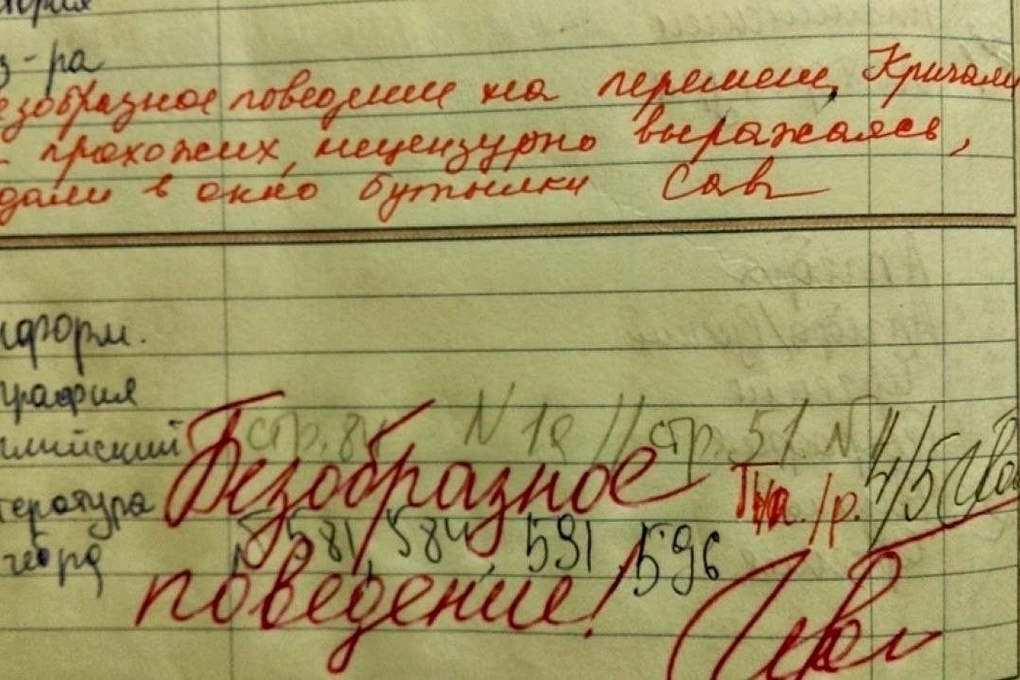 з-ра
езобразное поведение на перемене, Кричали
прохожих, нецензурно выражаясь,
дали в окно бутылки Сав
нформ.
графия
глийский стр. 84 N 19 // стр. 51 N
Безобразное 4/5
тература
N 581, 584, 591, 596
поведение!